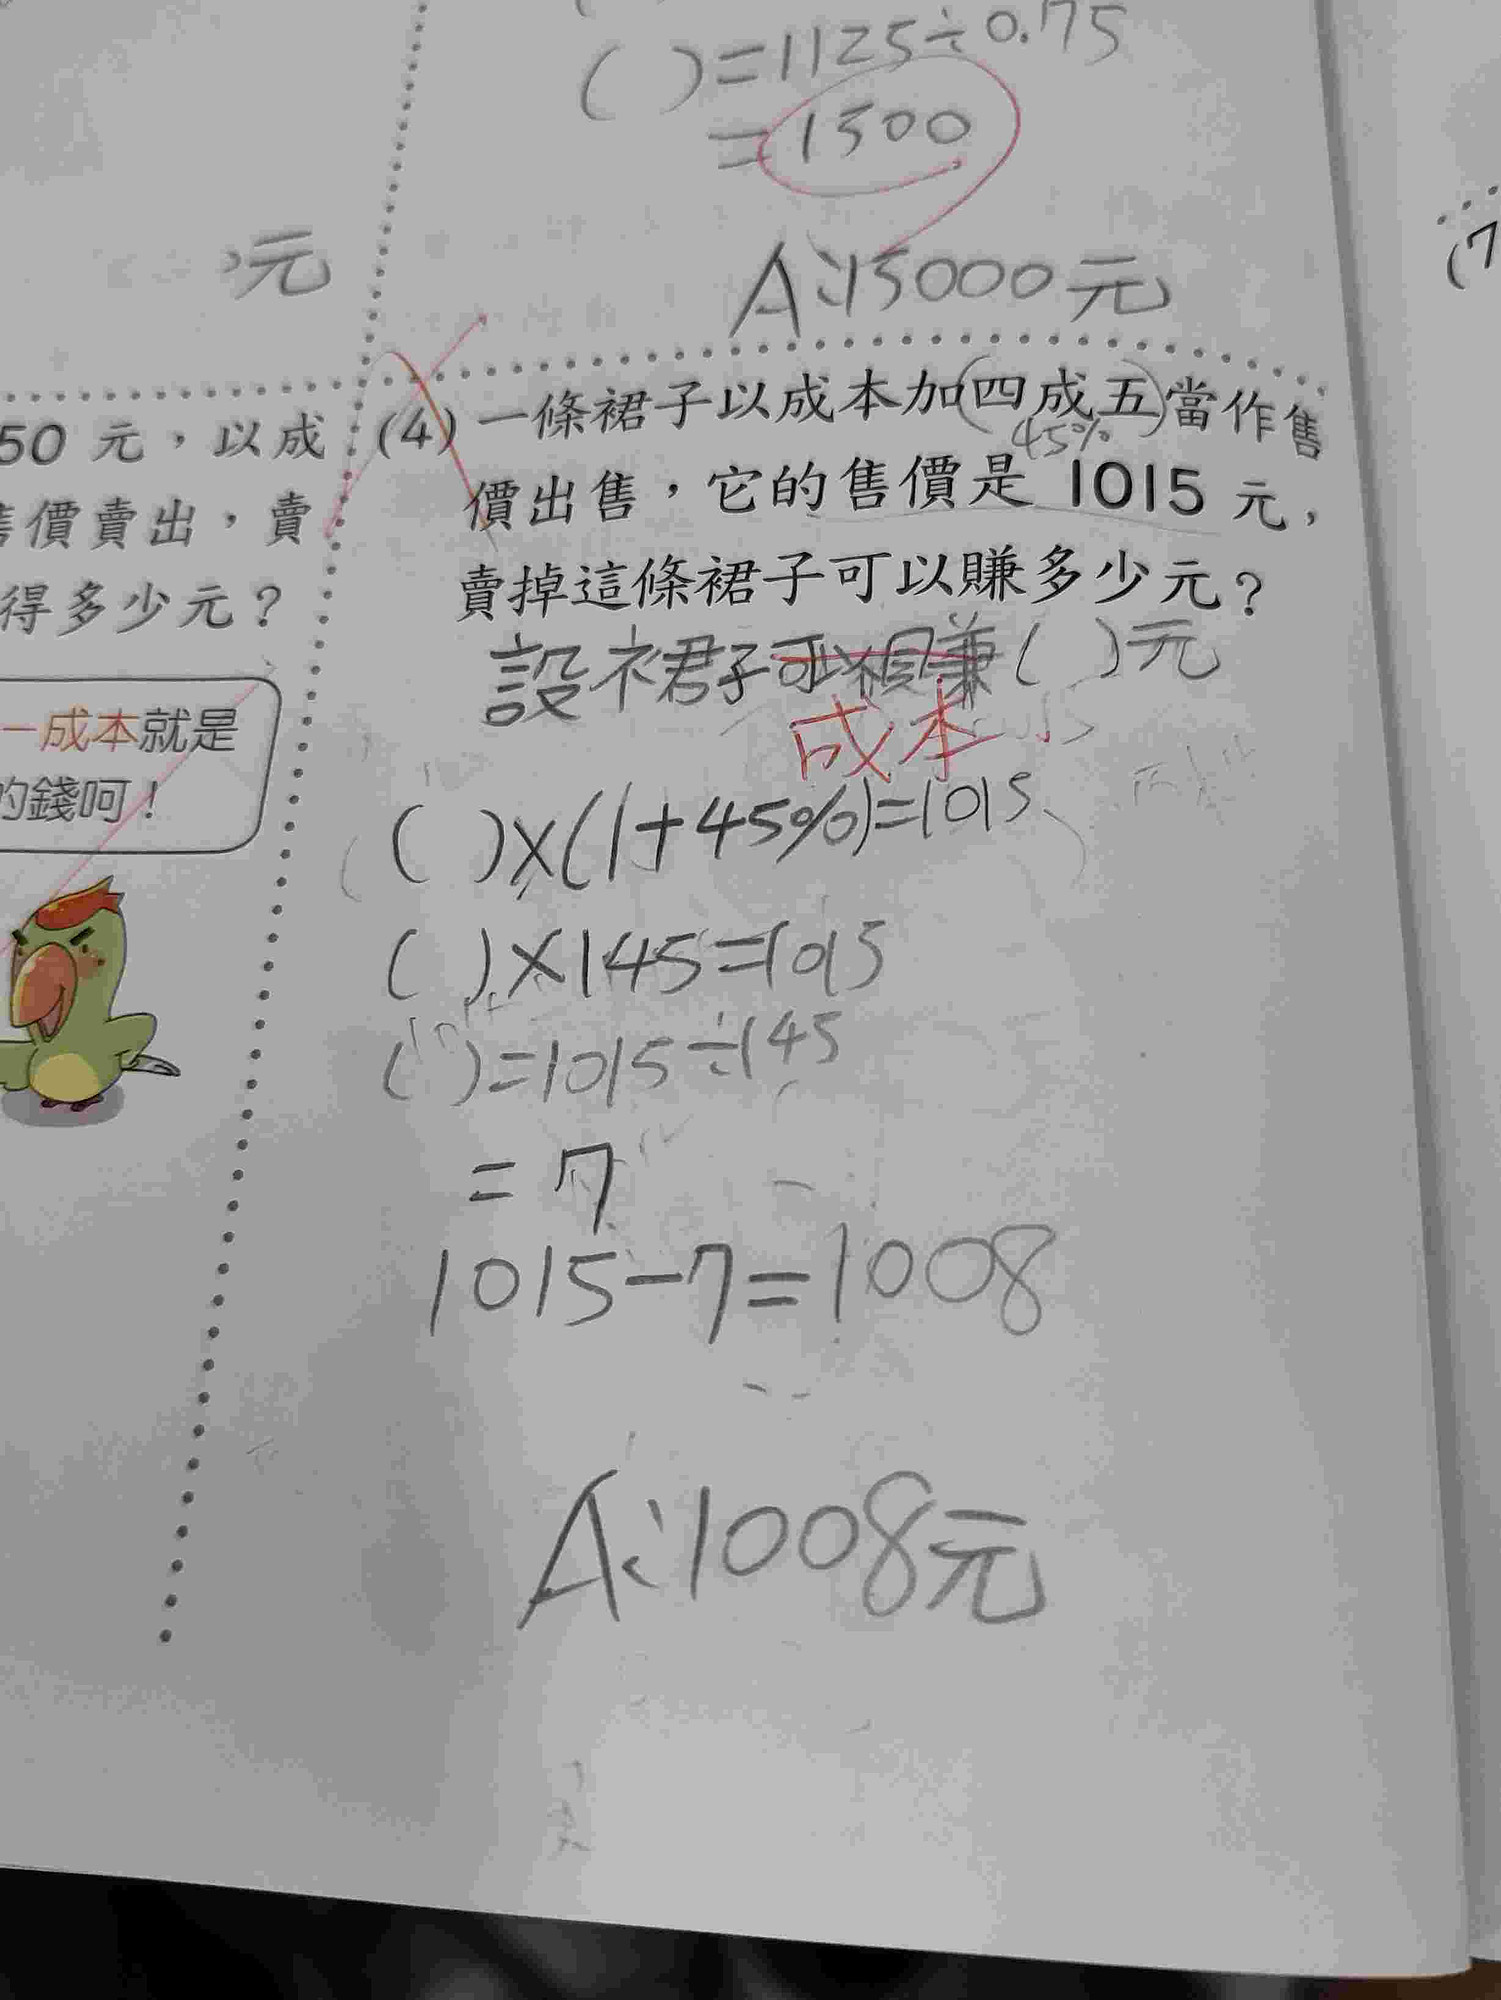 ( )=1125÷0.75
=1500
A:15000元
元
50 元，以成
售價賣出，賣
得多少元？
一成本就是
的錢呵！
(4) 一條裙子以成本加(四成五)當作售
45%
價出售，它的售價是 1015 元，
賣掉這條裙子可以賺多少元？
設裙子可以賺( )元
成本
( )×(1+45%)=1015
( )×145=1015
( )=1015÷145
=7
1015-7=1008
A:1008元
(7